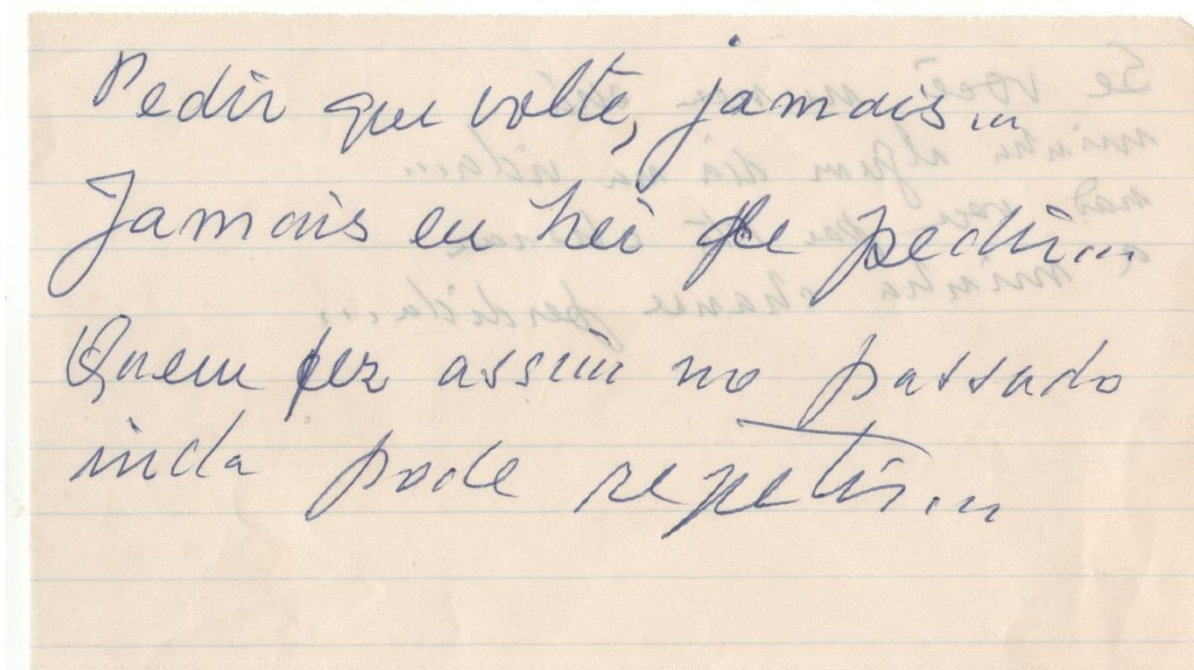 Pedir que volte, jamais...
Jamais eu hei de pedir...
Quem fez assim no passado
inda pode repetir...